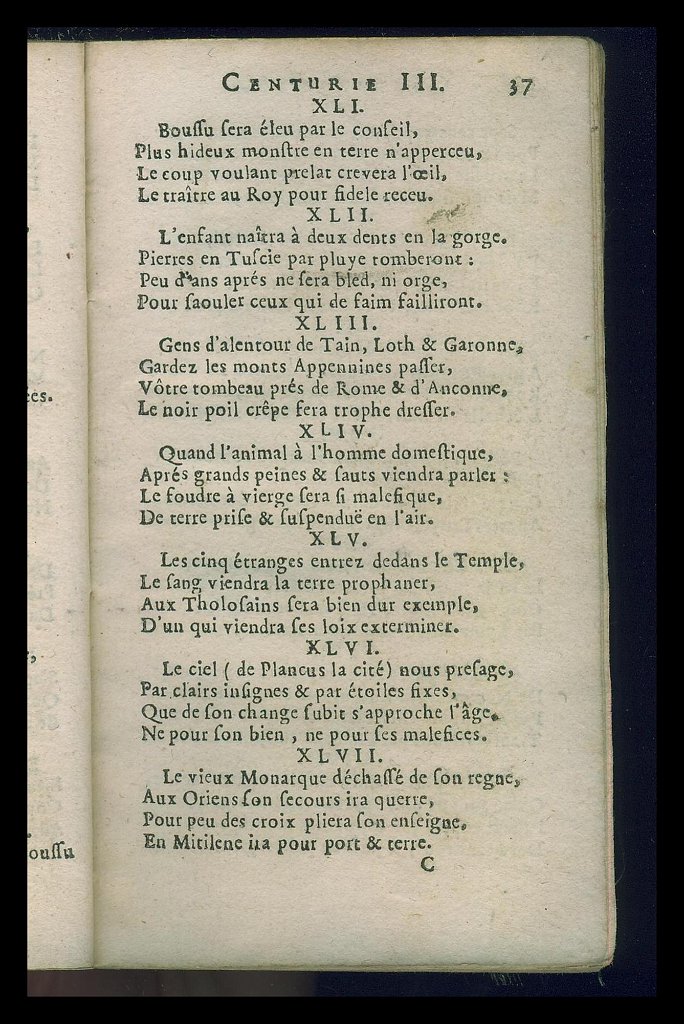 es.
,
oussu
CENTURIE III. 37
XLI.
Boussu sera éleu par le conseil,
Plus hideux monstre en terre n'apperceu,
Le coup voulant prelat crevera l'œil,
Le traître au Roy pour fidele receu.
XLII.
L'enfant naîtra à deux dents en la gorge.
Pierres en Tuscie par pluye tomberont :
Peu d'ans aprés ne sera bled, ni orge,
Pour saouler ceux qui de faim failliront.
XLIII.
Gens d'alentour de Tain, Loth & Garonne,
Gardez les monts Appennines passer,
Vôtre tombeau prés de Rome & d'Anconne,
Le noir poil crêpe fera trophe dresser.
XLIV.
Quand l'animal à l'homme domestique,
Aprés grands peines & sauts viendra parler :
Le foudre à vierge sera si malefique,
De terre prise & suspenduë en l'air.
XLV.
Les cinq étranges entrez dedans le Temple,
Le sang viendra la terre prophaner,
Aux Tholosains sera bien dur exemple,
D'un qui viendra ses loix exterminer.
XLVI.
Le ciel ( de Plancus la cité) nous presage,
Par clairs insignes & par étoiles fixes,
Que de son change subit s'approche l'âge,
Ne pour son bien , ne pour ses malefices.
XLVII.
Le vieux Monarque déchassé de son regne,
Aux Oriens son secours ira querre,
Pour peu des croix pliera son enseigne,
En Mitilene ira pour port & terre.
C